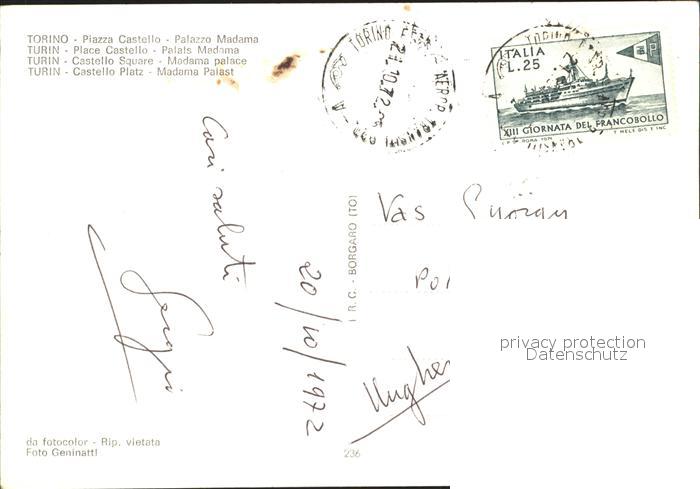 TORINO - Piazza Castello - Palazzo Madama
TURIN - Place Castello - Palais Madama
TURIN - Castello Square - Madama palace
TURIN - Castello Platz - Madama Palast
TORINO
21.10.72
TRANSITI
ITALIA
L.25
XIII GIORNATA DEL FRANCOBOLLO
Cari saluti
Sergio
20/10/1972
I.R.C. - BORGARO (TO)
Vas
privacy protection
Datenschutz
da fotocolor - Rip. vietata
Foto Geninatti
236